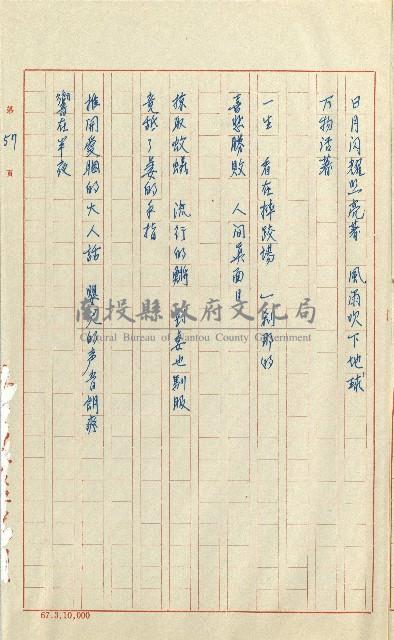 日月闪耀照亮著　風雨吹下地球
万物活著
一生　看在摔跤場　一刹那的
喜怒勝敗　人間真面目
採取蚊蟻　流行的　對妻也剝服
竟抵了妻的手指
推開愛胭的大人話　嬰兒的声音朗爽
響在半夜
第 57 頁
南投縣政府文化局
Cultural Bureau of Nantou County Government
67.3.10,000